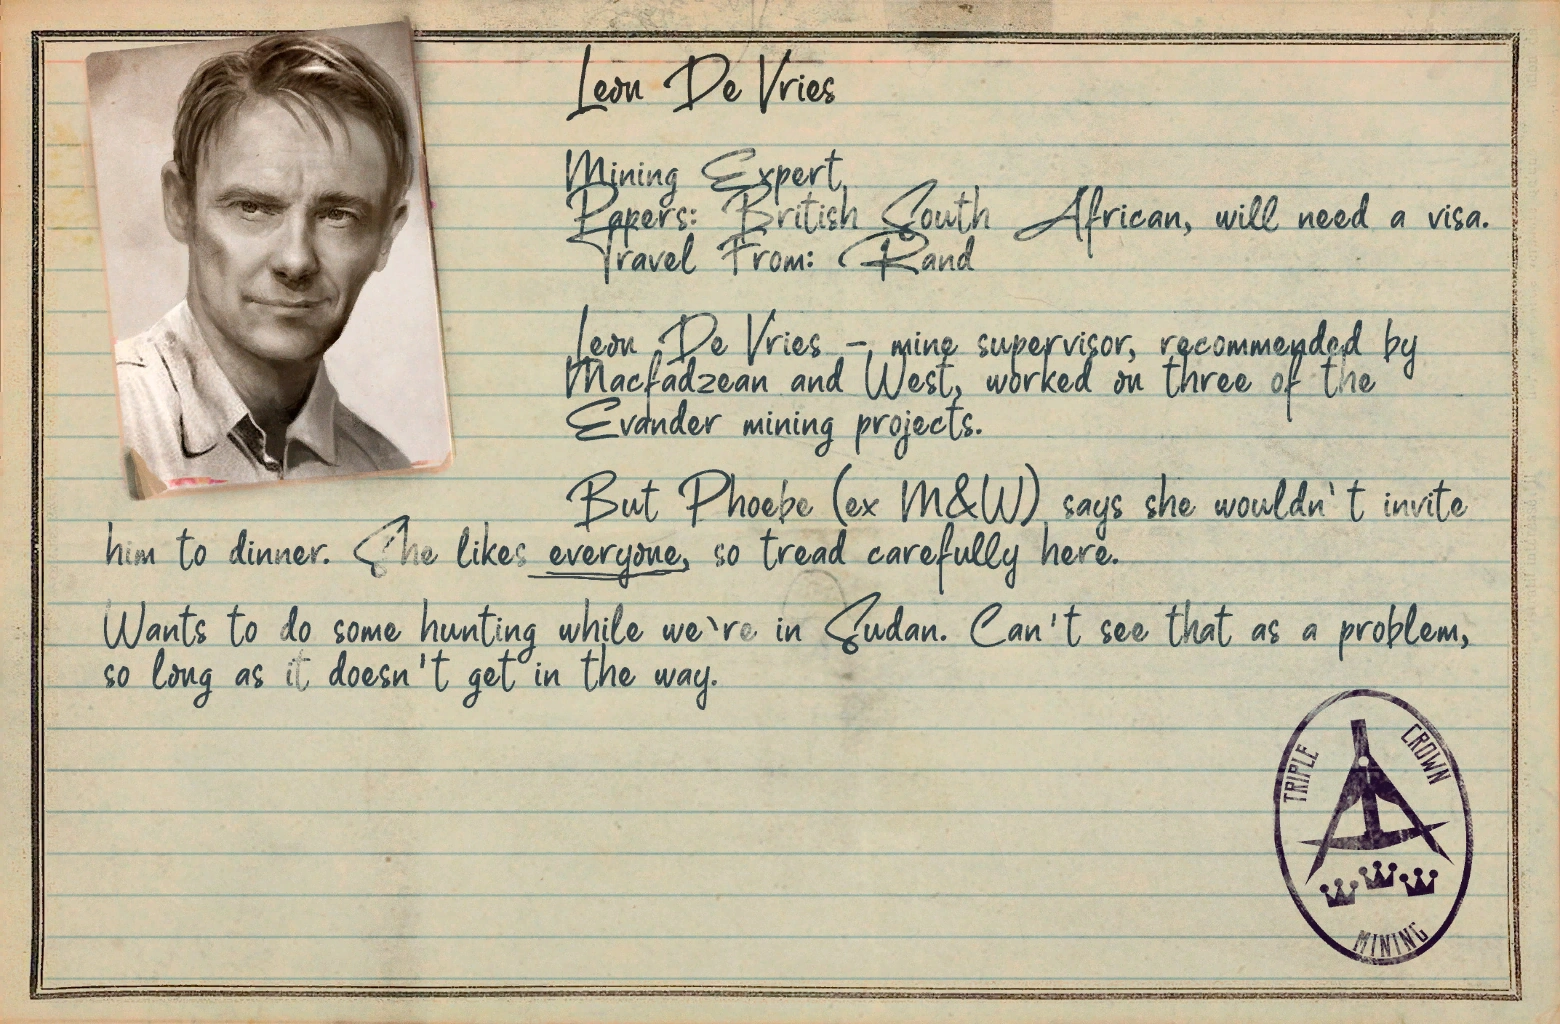 Leon De Vries
Mining Expert
Papers: British South African, will need a visa.
Travel From: Rand
Leon De Vries - mine supervisor, recommended by
Macfadzean and West, worked on three of the
Evander mining projects.
But Phoebe (ex M&W) says she wouldn't invite
him to dinner. She likes everyone, so tread carefully here.
Wants to do some hunting while we`re in Sudan. Can't see that as a problem,
so long as it doesn't get in the way.
TRIPLE CROWN
MINING